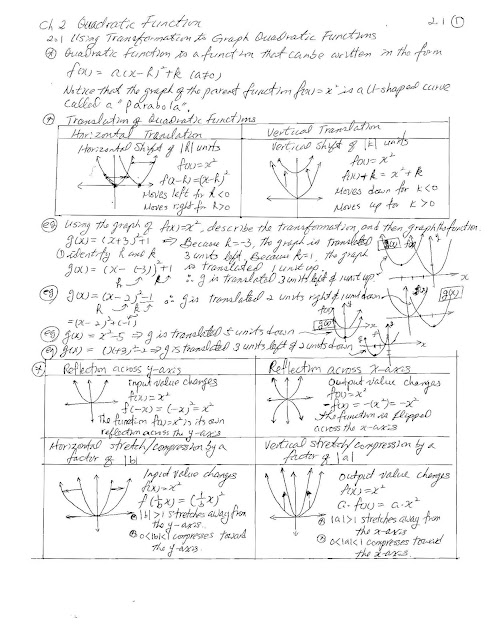 Ch 2 Quadratic Function
2.1 ①
2.1 Using Transformation to Graph Quadratic Functions
Quadratic Function is a function that can be written in the form
f(x) = a(x-h)²+k (a≠0)
Notice that the graph of the parent function f(x) = x² is a U-shaped curve
called a "parabola".
Translation of Quadratic functions
Horizontal Translation
Horizontal Shift of |h| units
f(x)=x²
f(x-h)=(x-h)²
Moves left for h<0
Moves right for h>0
Vertical Translation
Vertical Shift of |k| units
f(x)=x²
f(x)+k = x²+k
Moves down for k<0
Moves up for k>0
eg Using the graph of f(x)=x², describe the transformation, and then graph the function.
g(x) = (x+3)²+1 ⇒ Because h=-3, the graph is translated
① identify h and k 3 units left, Because k=1, the graph
g(x) = (x-(-3))²+1 is translated 1 unit up.
h k ∴ g is translated 3 units left 1 unit up
g(x) f(x)
x
eg g(x) = (x-2)²-1 ∴ g is translated 2 units right 1 unit down
h k
=(x-2)²+(-1)
f(x) g(x)
eg g(x) = x²-5 ⇒ g is translated 5 units down
eg g(x) = (x+3)²-2 ⇒ g is translated 3 units left 2 units down
Reflection across y-axis
input value changes
f(x)=x²
f(-x) = (-x)² = x²
The function f(x)=x² is its own
reflection across the y-axis
Reflection across x-axis
Output value changes
f(x)=x²
-f(x) = -(x²) = -x²
The function is flipped
across the x-axis
Horizontal stretch/compression by a
factor of |b|
Input value changes
f(x)=x²
f(1/b x) = (1/b x)²
|b|>1 stretches away from
the y-axis.
0<|b|<1 compresses toward
the y-axis
Vertical stretch/compression by a
factor of |a|
Output value changes
f(x) = x²
a·f(x) = a·x²
|a|>1 stretches away from
the x-axis
0<|a|<1 compresses toward
the x-axis